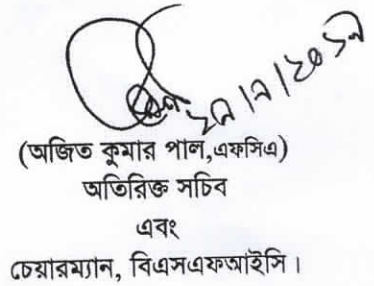 (অজিত কুমার পাল,এফসিএ)
অতিরিক্ত সচিব
এবং
চেয়ারম্যান, বিএসএফআইসি।